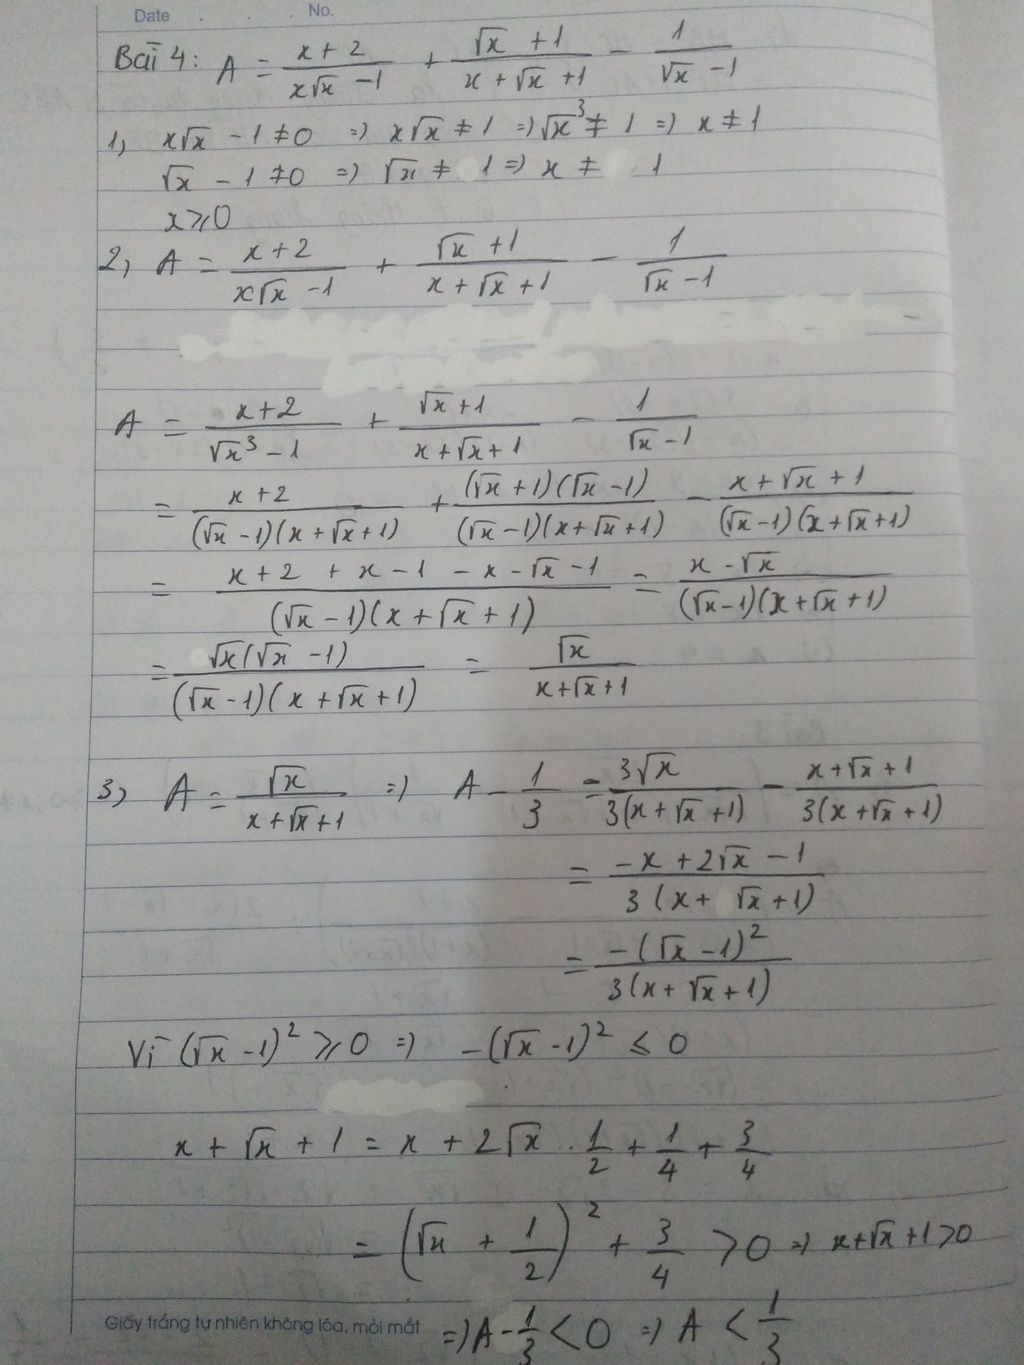 Date . . . No.
Bài 4: A = \frac{x+2}{x\sqrt{x}-1} + \frac{\sqrt{x}+1}{x+\sqrt{x}+1} - \frac{1}{\sqrt{x}-1}
1, x\sqrt{x} - 1 ≠ 0 => x\sqrt{x} ≠ 1 => \sqrt{x}^3 ≠ 1 => x ≠ 1
\sqrt{x} - 1 ≠ 0 => \sqrt{x} ≠ 1 => x ≠ 1
x ≥ 0
2, A = \frac{x+2}{x\sqrt{x}-1} + \frac{\sqrt{x}+1}{x+\sqrt{x}+1} - \frac{1}{\sqrt{x}-1}
A = \frac{x+2}{\sqrt{x}^3-1} + \frac{\sqrt{x}+1}{x+\sqrt{x}+1} - \frac{1}{\sqrt{x}-1}
= \frac{x+2}{(\sqrt{x}-1)(x+\sqrt{x}+1)} + \frac{(\sqrt{x}+1)(\sqrt{x}-1)}{(\sqrt{x}-1)(x+\sqrt{x}+1)} - \frac{x+\sqrt{x}+1}{(\sqrt{x}-1)(x+\sqrt{x}+1)}
= \frac{x+2+x-1-x-\sqrt{x}-1}{(\sqrt{x}-1)(x+\sqrt{x}+1)} = \frac{x-\sqrt{x}}{(\sqrt{x}-1)(x+\sqrt{x}+1)}
= \frac{\sqrt{x}(\sqrt{x}-1)}{(\sqrt{x}-1)(x+\sqrt{x}+1)} = \frac{\sqrt{x}}{x+\sqrt{x}+1}
3, A = \frac{\sqrt{x}}{x+\sqrt{x}+1} => A - \frac{1}{3} = \frac{3\sqrt{x}}{3(x+\sqrt{x}+1)} - \frac{x+\sqrt{x}+1}{3(x+\sqrt{x}+1)}
= \frac{-x+2\sqrt{x}-1}{3(x+\sqrt{x}+1)}
= \frac{-(\sqrt{x}-1)^2}{3(x+\sqrt{x}+1)}
Vì (\sqrt{x}-1)^2 ≥ 0 => -(\sqrt{x}-1)^2 ≤ 0
x + \sqrt{x} + 1 = x + 2\sqrt{x} . \frac{1}{2} + \frac{1}{4} + \frac{3}{4}
= (\sqrt{x} + \frac{1}{2})^2 + \frac{3}{4} > 0 => x+\sqrt{x}+1 > 0
Giấy trắng tự nhiên không lóa, mỏi mắt => A - \frac{1}{3} < 0 => A < \frac{1}{3}